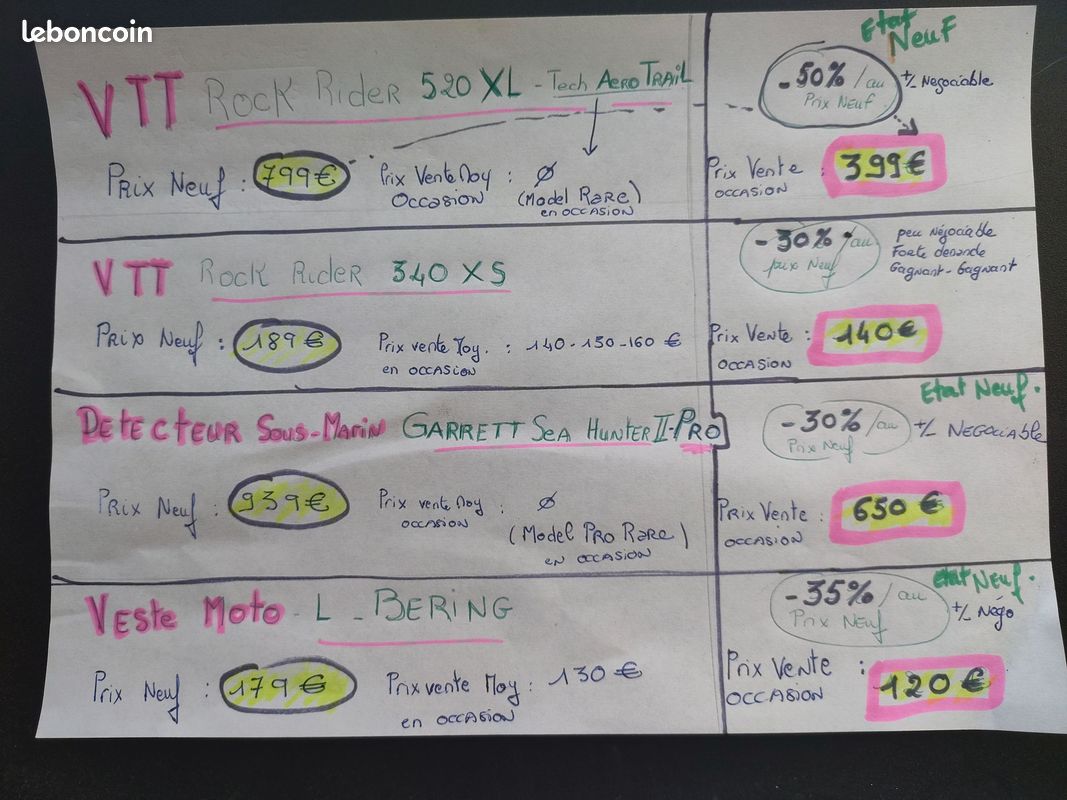 leboncoin
Etat Neuf
VTT Rock Rider 520 XL - Tech Aero Trail
-50% /au +/- Negociable
Prix Neuf
Prix Neuf : 799€ Prix Vente Moy : Ø Prix Vente : 399€
Occasion (Model Rare) occasion
en occasion
VTT Rock Rider 340 XS
-30% /au peu Négociable
prix Neuf Forte demande
Gagnant-Gagnant
Prix Neuf : 189€ Prix vente Moy. : 140-150-160 € Prix Vente : 140€
en occasion occasion
Etat Neuf.
Detecteur Sous-Marin Garrett Sea Hunter II-Pro
-30% /au +/- Negociable
Prix Neuf
Prix Neuf : 939€ Prix vente Moy : Ø Prix Vente : 650 €
occasion (Model Pro Rare) occasion
en occasion
Etat Neuf.
Veste Moto - L - Bering
-35% /au +/- Négo
Prix Neuf
Prix Neuf : 179€ Prix vente Moy : 130 € Prix Vente : 120€
en occasion occasion